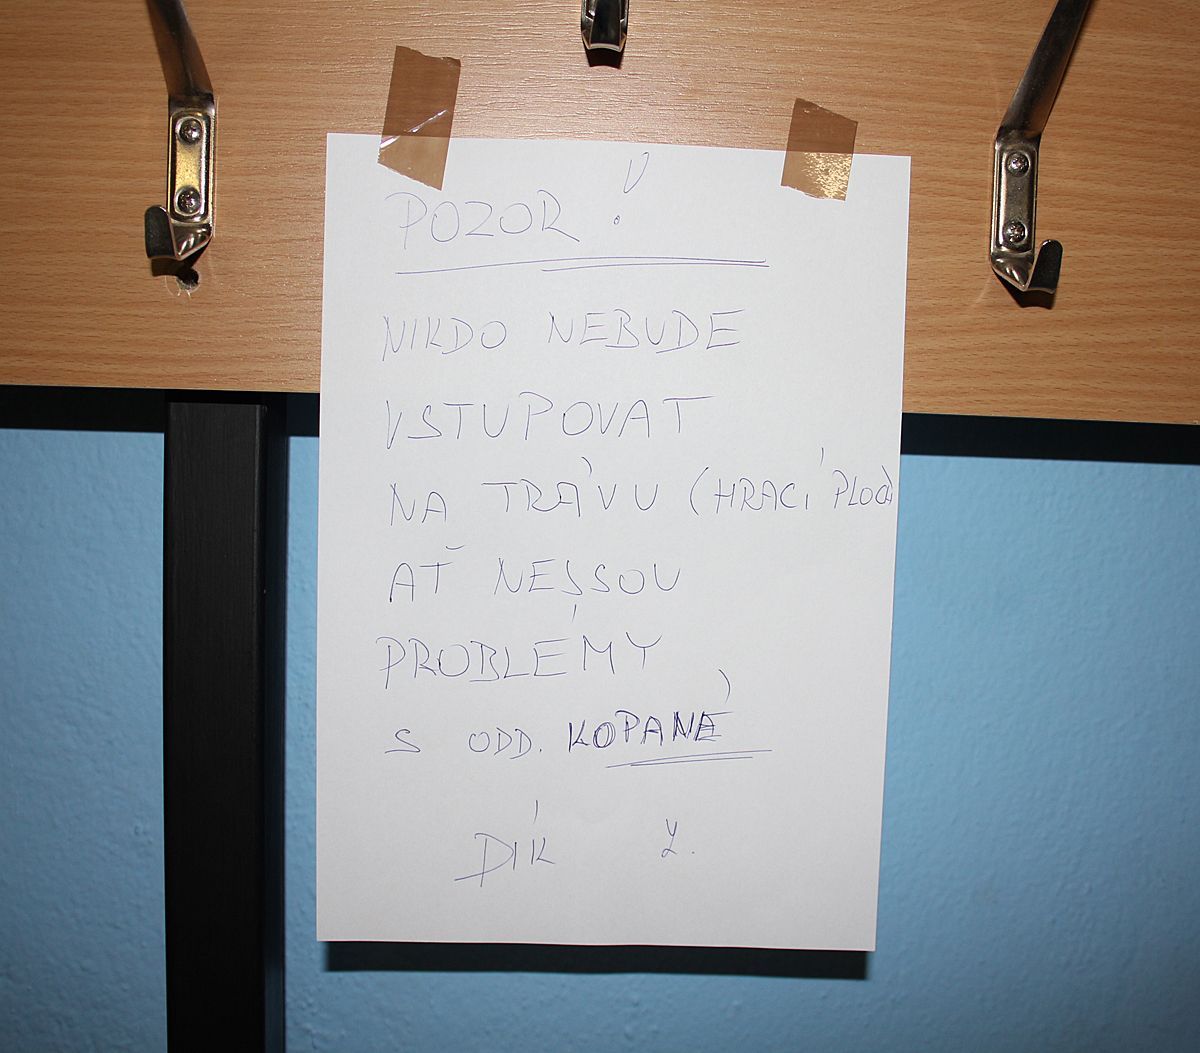 POZOR!
NIKDO NEBUDE
VSTUPOVAT
NA TRÁVU (HRACÍ PLOCH
AŤ NEJSOU
PROBLÉMY
S ODD. KOPANÉ
DÍK